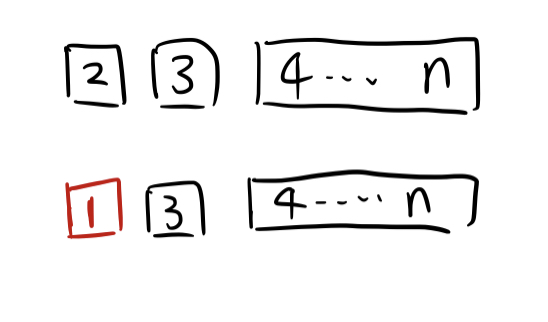 2 3 4--- n
1 3 4---- n